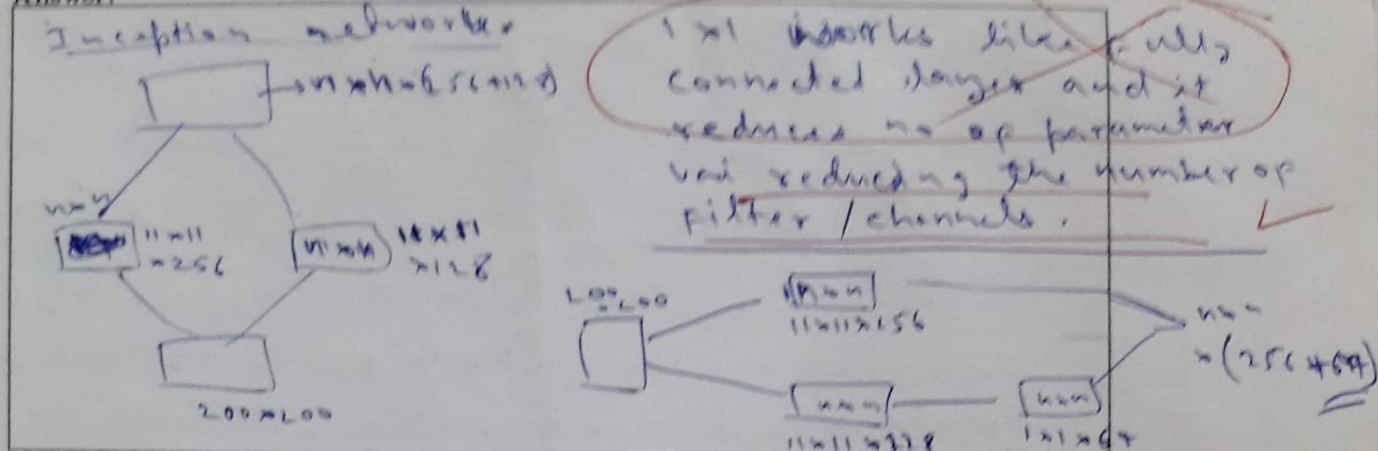 Inception networks
n×n×(256+128)
n×n
11×11
×256
n×n
11×11
×128
200×200
1×1 works like fully
connected layer and it
reduces no of parameter
vai reducing the number of
filter / channels.
200×200
n×n
11×11×256
n×n
11×11×128
n×n
1×1×64
n×n
×(256+64)